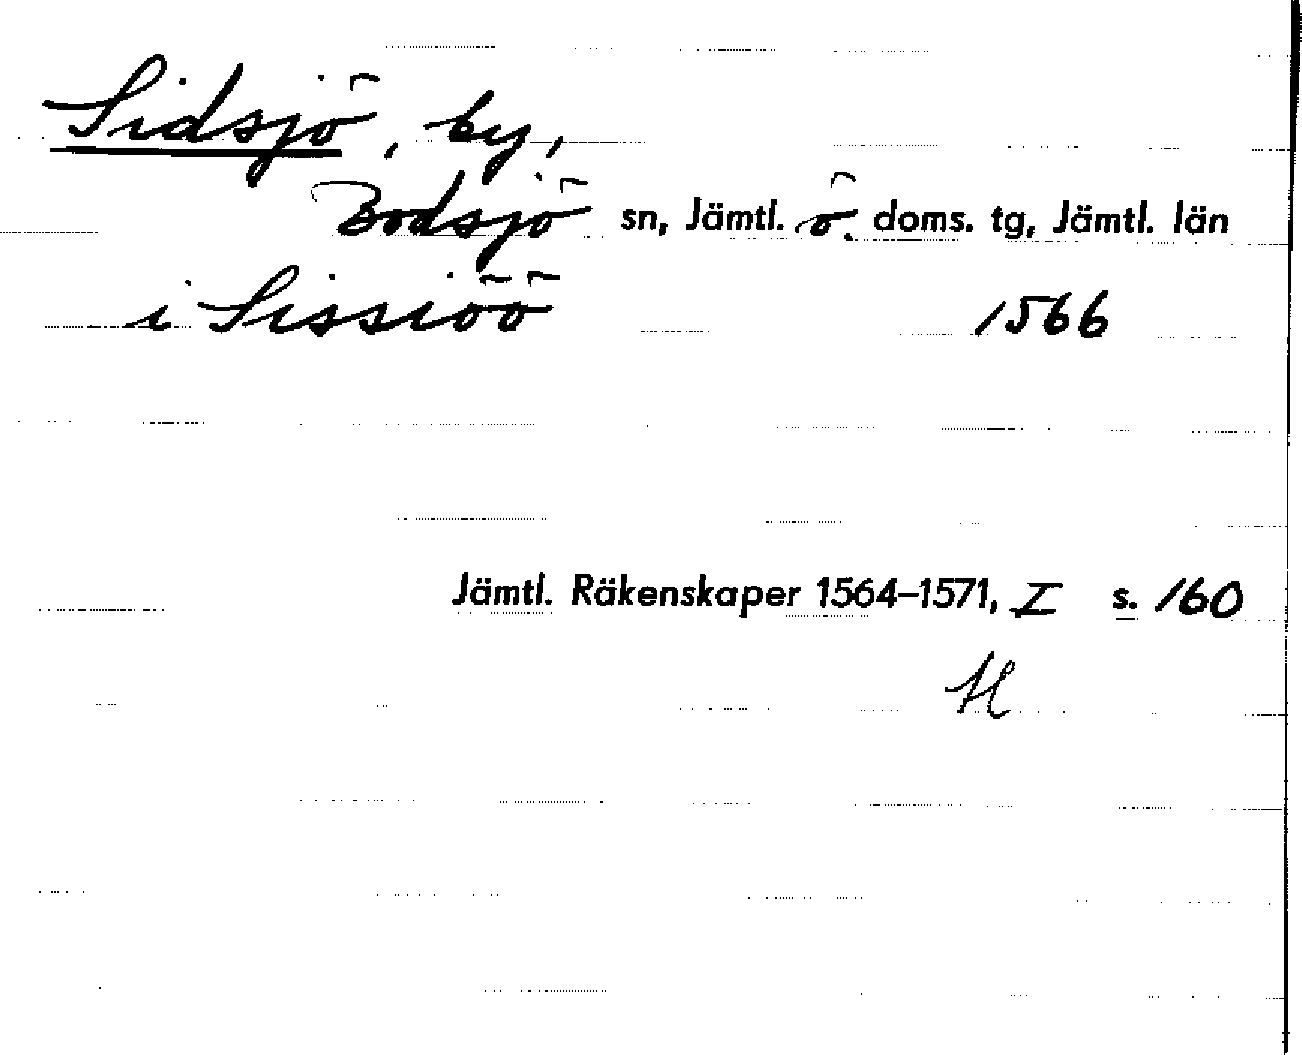 Sidsjö, by,
Bodsjö sn, Jämtl. ö. doms. tg, Jämtl. län
i Sissiöö 1566
Jämtl. Räkenskaper 1564–1571, I s. 160